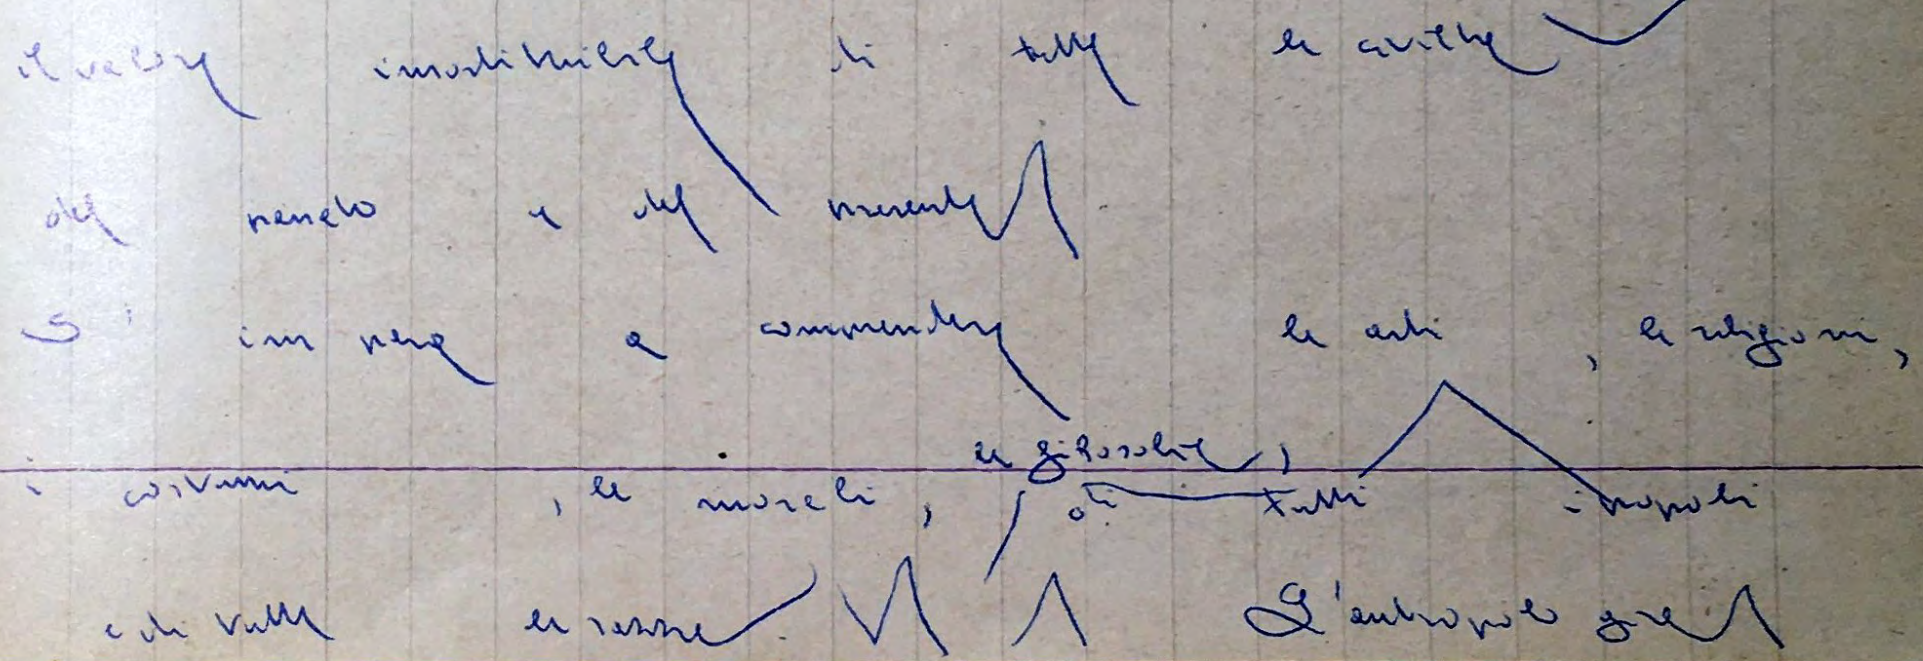 il valore insostituibile di tutte le civiltà
del passato e del presente
Si impara a comprendere le arti, le religioni,
le filosofie,
i costumi, le morali, di tutti i popoli
e di tutte le razze. L'antropologia